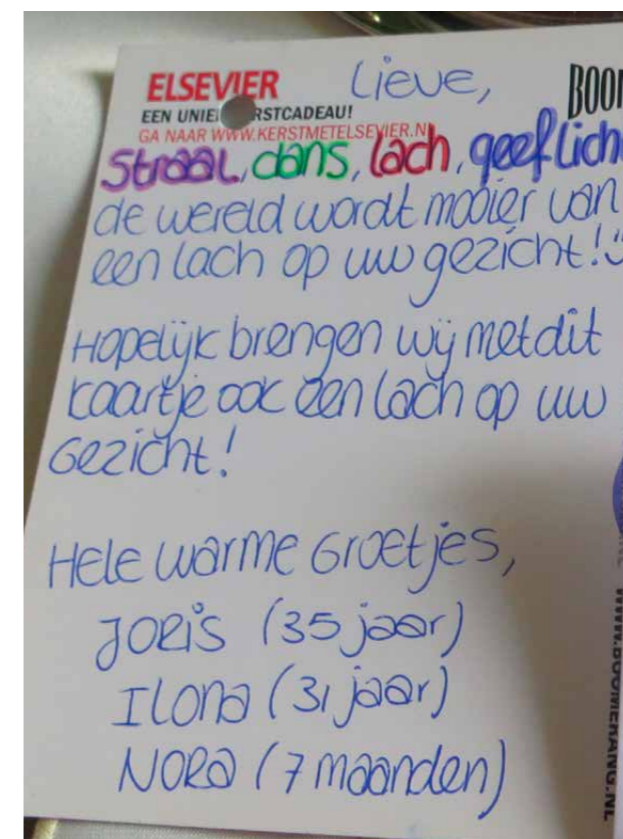 ELSEVIER Lieve, BOOM
EEN UNIEK KERSTCADEAU!
GA NAAR WWW.KERSTMETELSEVIER.NL
straal, dans, lach, geef licht
de wereld wordt mooier van
een lach op uw gezicht!
Hopelijk brengen wij met dit
kaartje ook een lach op uw
gezicht!
Hele warme Groetjes,
Joris (35 jaar)
Ilona (31 jaar)
Nora (7 maanden)
WWW.BOOMERANG.NL